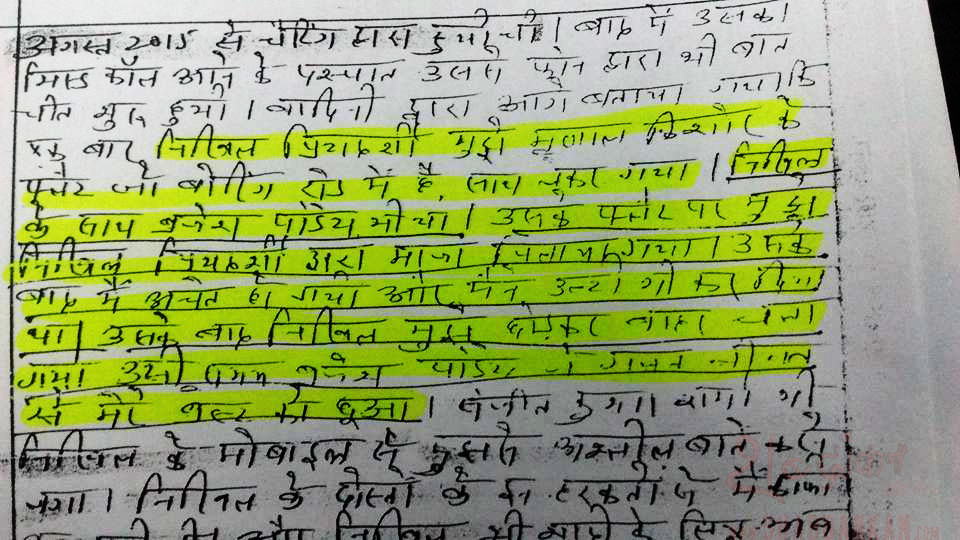 अगस्त 2015 से चैटिंग द्वारा हुयी थी। बाद में उसका
मिस्ड कॉल आने के पश्चात उससे फोन द्वारा भी बात
चीत शुरू हुयी। वादिनी द्वारा आगे बताया गया कि
एक बार निखिल प्रियदर्शी मुझे मृणाल किशोर के
फ्लैट जो बोरिंग रोड में है, लाया गया। निखिल
के साथ ब्रजेश पांडेय भी था। उसके फ्लैट पर मुझे
निखिल प्रियदर्शी द्वारा पिलाया गया। उसके
बाद मैं अचेत हो गयी और मैंने उल्टी भी कर दिया
था। उसके बाद निखिल मुझे छोड़कर बाहर चला
गया उसी समय ब्रजेश पांडेय ने गलत नीयत
से मेरे बदन को छूआ। संजीत भी
निखिल के मोबाइल से मुझसे अश्लील बातें करने
लगा। निखिल के दोस्तों के इन हरकतों से मैं काफी
निखिल भी शादी के लिए अब